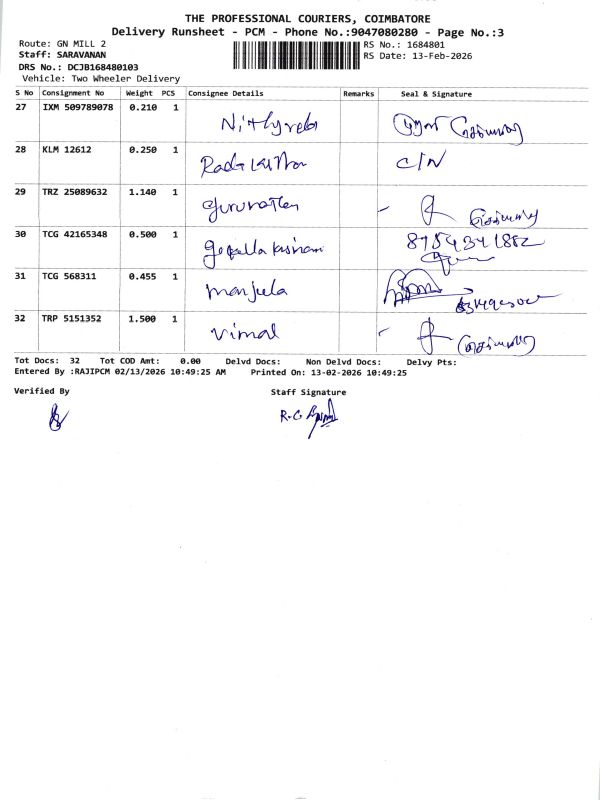 THE PROFESSIONAL COURIERS, COIMBATORE
Delivery Runsheet - PCM - Phone No.:9047080280 - Page No.:3
Route: GN MILL 2
RS No.: 1684801
Staff: SARAVANAN
RS Date: 13-Feb-2026
DRS No.: DCJB168480103
Vehicle: Two Wheeler Delivery
S No Consignment No Weight PCS Consignee Details Remarks Seal & Signature
27 IXM 509789078 0.210 1
28 KLM 12612 0.250 1 C/N
29 TRZ 25089632 1.140 1
30 TCG 42165348 0.500 1
31 TCG 568311 0.455 1 Manjula
32 TRP 5151352 1.500 1 Vimal
Tot Docs: 32 Tot COD Amt: 0.00 Delvd Docs: Non Delvd Docs: Delvy Pts:
Entered By :RAJIPCM 02/13/2026 10:49:25 AM Printed On: 13-02-2026 10:49:25
Verified By Staff Signature